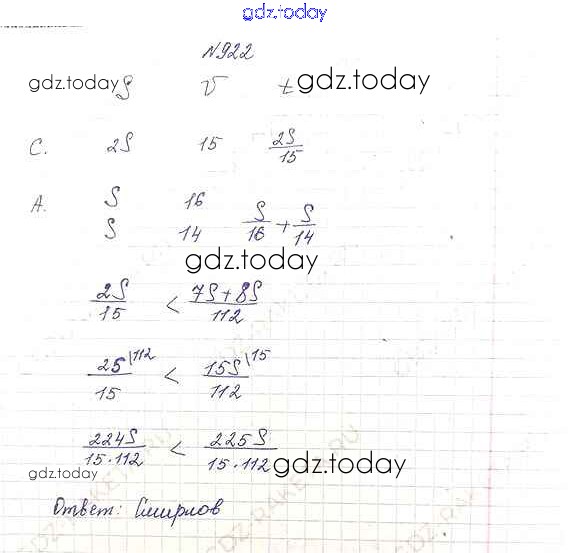 gdz.today
N922
gdz.today S V t gdz.today
С. 2S 15 2S/15
А. S 16
S 14 S/16 + S/14
gdz.today
2S/15 < 7S+8S/112
2S\112/15 < 15S\15/112
224S/15·112 < 225S/15·112
gdz.today gdz.today
Ответ: Смирлов